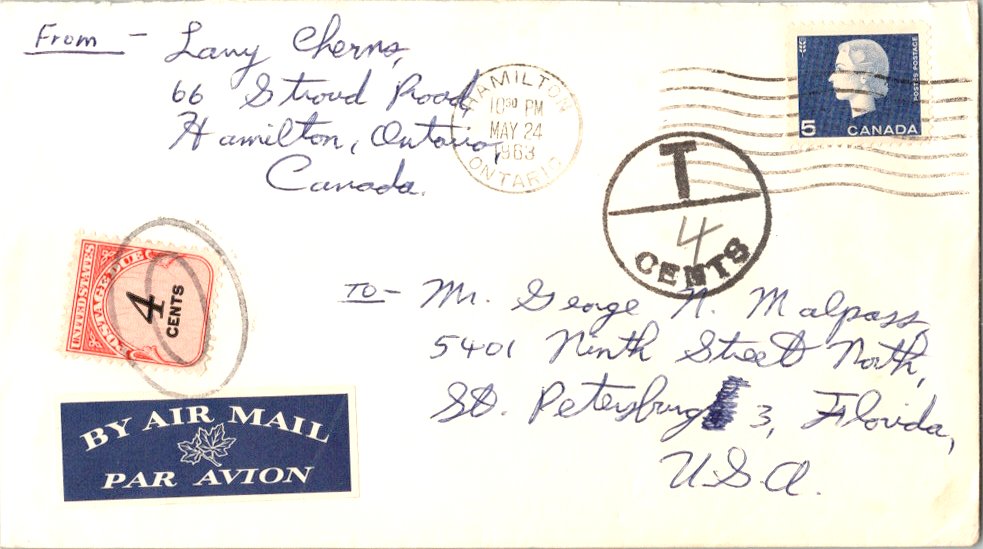 From - Larry Cherns,
66 Stroud Road,
Hamilton, Ontario,
Canada.
HAMILTON
10 30 PM
MAY 24
1963
ONTARIO
POSTES POSTAGE
5 CANADA
T
4
CENTS
UNITED STATES
POSTAGE DUE
4
CENTS
TO - Mr. George N. Malpass,
5401 Ninth Street North,
St. Petersburg 3, Florida,
U.S.A.
BY AIR MAIL
PAR AVION